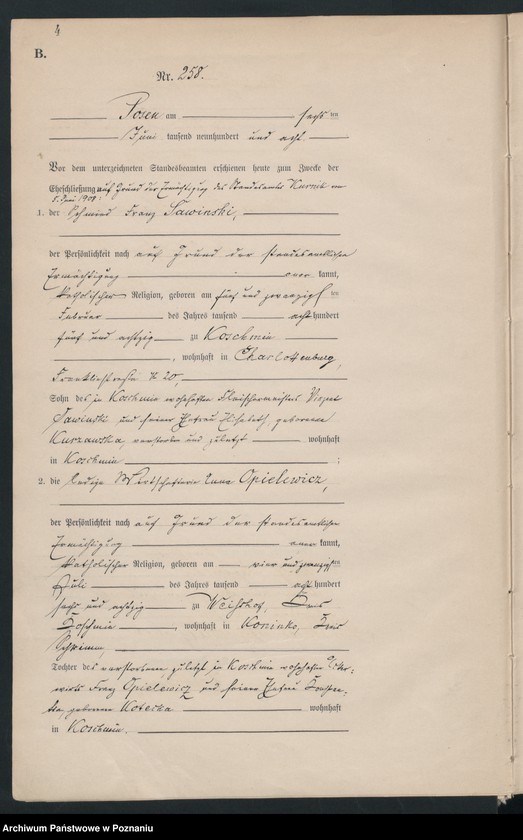 4
B.
Nr. 258.
Posen am sechs ten
Juni tausend neunhundert und acht
Vor dem unterzeichneten Standesbeamten erschienen heute zum Zwecke der
Eheschließung auf Grund der Ermächtigung des Standesamts Kurnik vom
5. Juni 1908
1. der Schmied Franz Sawinski,
der Persönlichkeit nach auf Grund der standesamtlichen
Ermächtigung kannt,
katholischer Religion, geboren am fünf und zwanzigsten
Februar des Jahres tausend acht hundert
fünf und achtzig zu Koschmin
, wohnhaft in Charlottenburg,
20,
Sohn des in Koschmin wohnhaften Fleischermeisters
Sawinski und seiner Ehefrau Elisabeth, geborenen
Kurzawska verstorben und zuletzt wohnhaft
in Koschmin ;
2. die ledige Wirtschafterin Anna Opielewicz,
der Persönlichkeit nach auf Grund der standesamtlichen
Ermächtigung kannt,
katholischer Religion, geboren am vier und zwanzigsten
Juli des Jahres tausend acht hundert
sechs und achtzig zu Weißhof, Kreis
Koschmin, wohnhaft in Koninko, Kreis
Schrimm,
Tochter des verstorbenen, zuletzt in Koschmin wohnhaften
Franz Opielewicz und seiner Ehefrau
geborenen Koterka wohnhaft
in Koschmin.
Archiwum Państwowe w Poznaniu